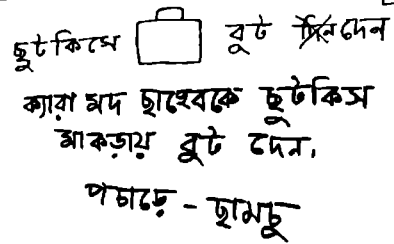 ছুটকিসে বুট দেন
ক্যারা মদ ছাহেবকে ছুটকিস
মাকড়ায় বুট দেন,
পচাড়ে - ছামচু